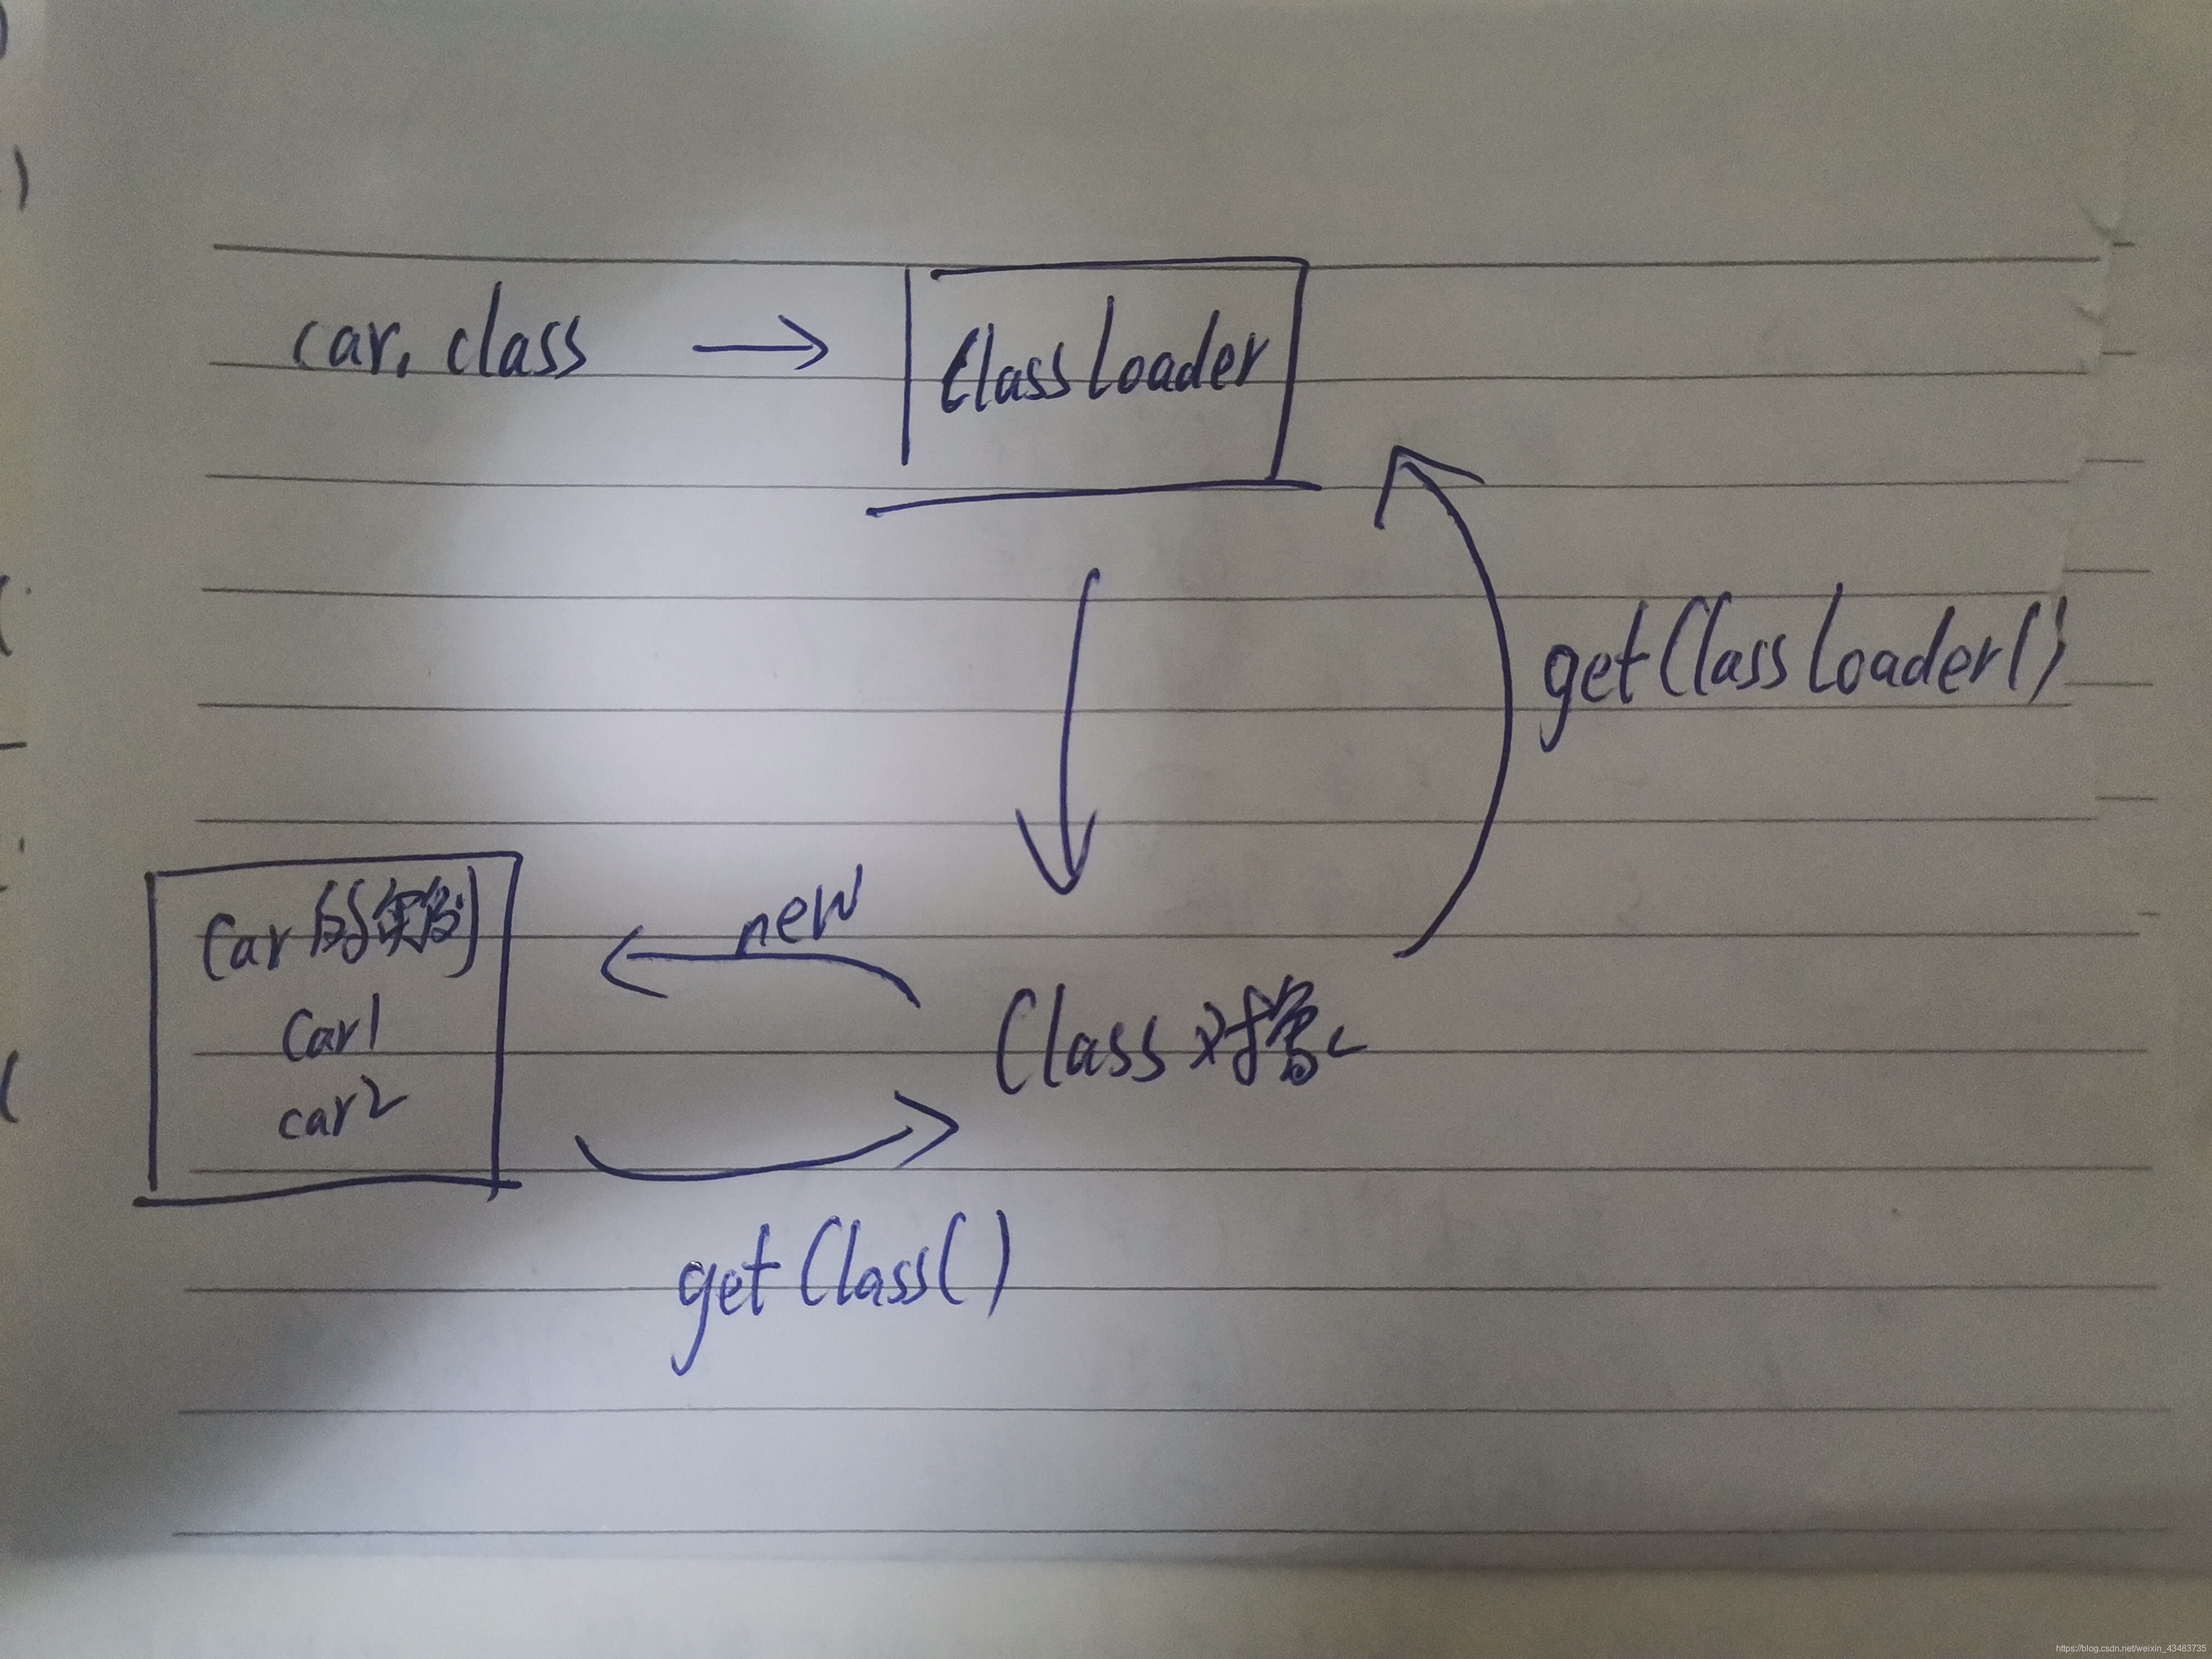 car.class
ClassLoader
getClassLoader()
new
Car的实例
Car1
car2
Class对象
getClass()
https://blog.csdn.net/weixin_43483735